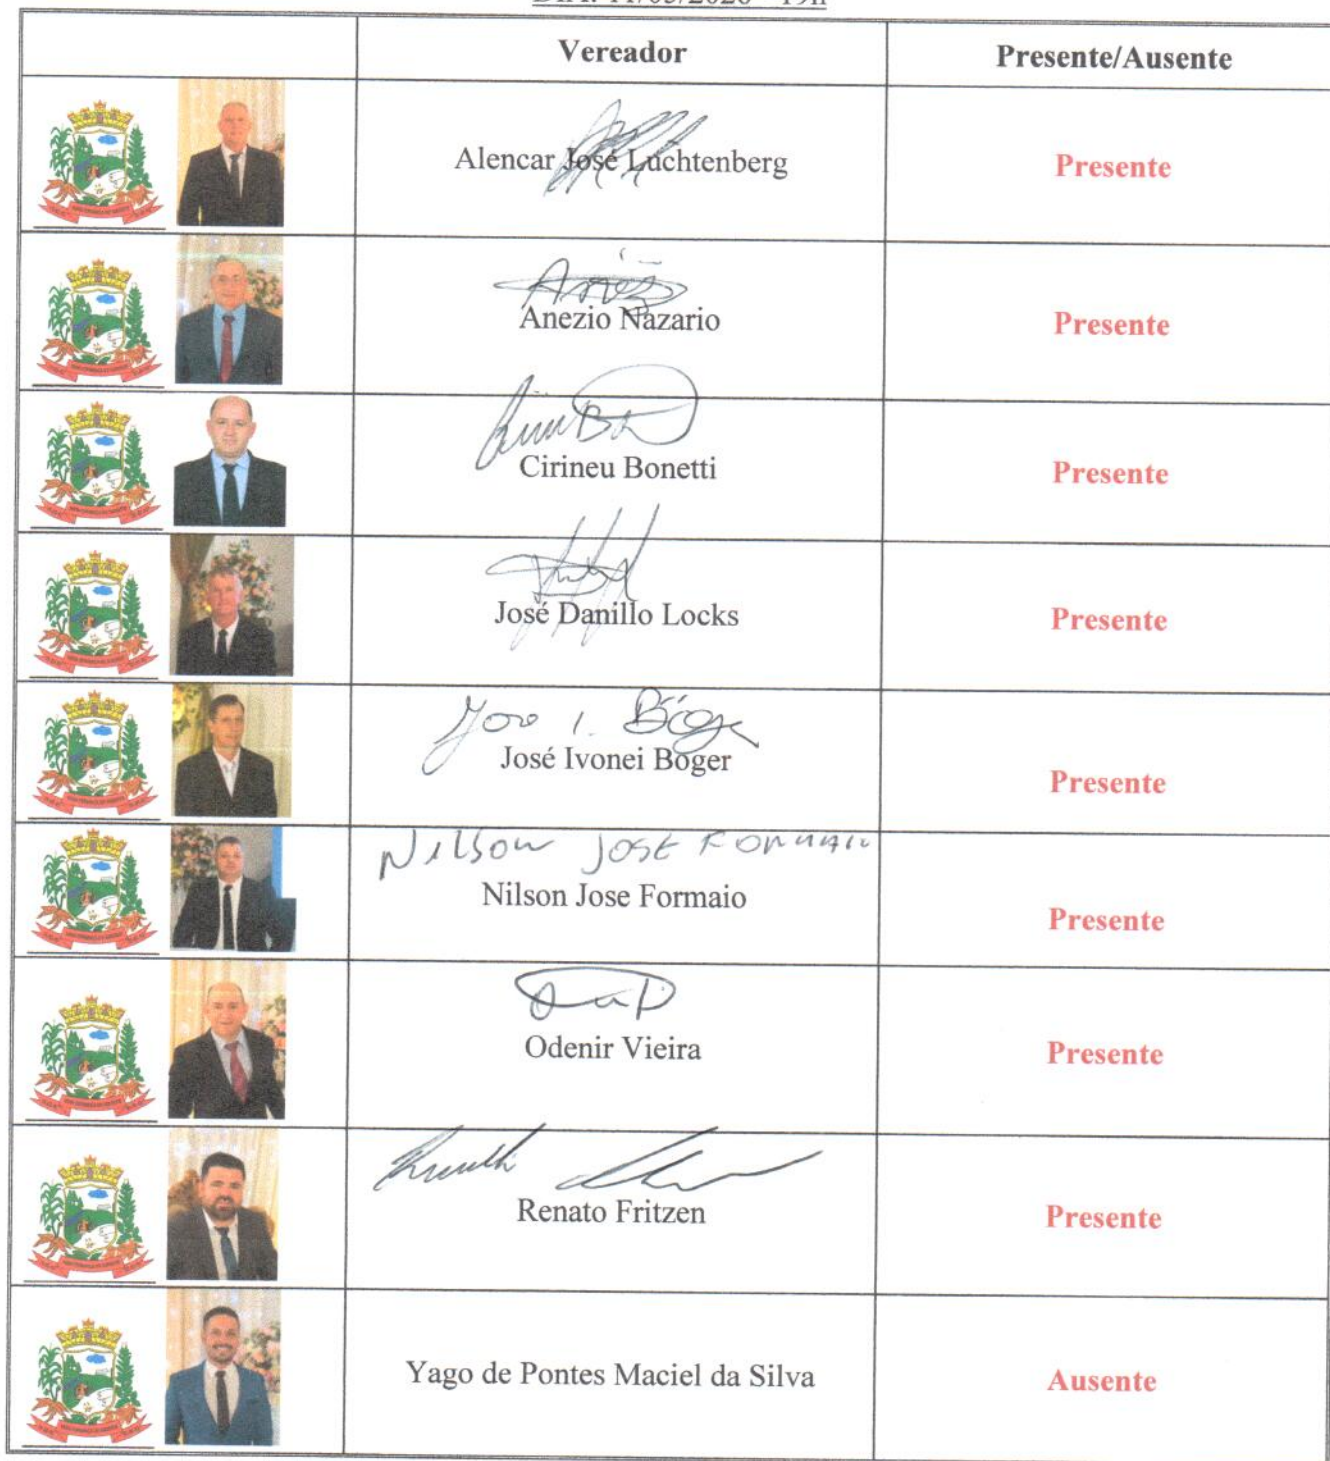 Vereador Presente/Ausente
Alencar José Luchtenberg Presente
Anezio Nazario Presente
Cirineu Bonetti Presente
José Danillo Locks Presente
José I. Böger
José Ivonei Böger Presente
Nilson José Formaio
Nilson Jose Formaio Presente
Odenir Vieira Presente
Renato Fritzen Presente
Yago de Pontes Maciel da Silva Ausente